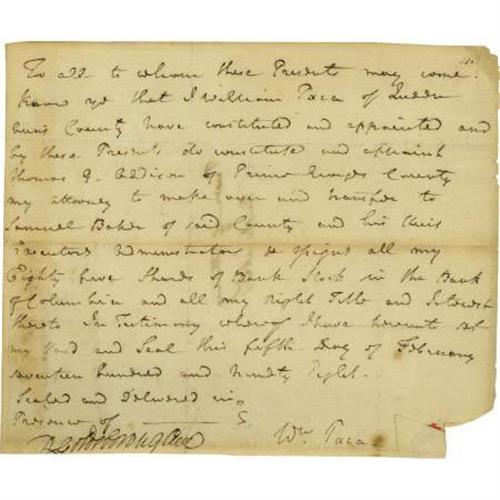 To all to whom these Presents may come.
Know ye that I William Paca of Queen
Anns County have constituted and appointed and
by these Presents do constitute and appoint
Thomas G. Addison of Prince Georges County
my attorney to make over and transfer to
Samuel Baker of said County and his Heirs
Executors Administrators & Assigns all my
Eighty five Shares of Bank Stock in the Bank
of Columbia and all my Right Title and Interest
thereto In Testimony whereof I have hereunto set
my Hand and Seal this fifth Day of February
seventeen hundred and Ninety Eight.
Sealed and Delivered in
Presence of
Wm. Paca